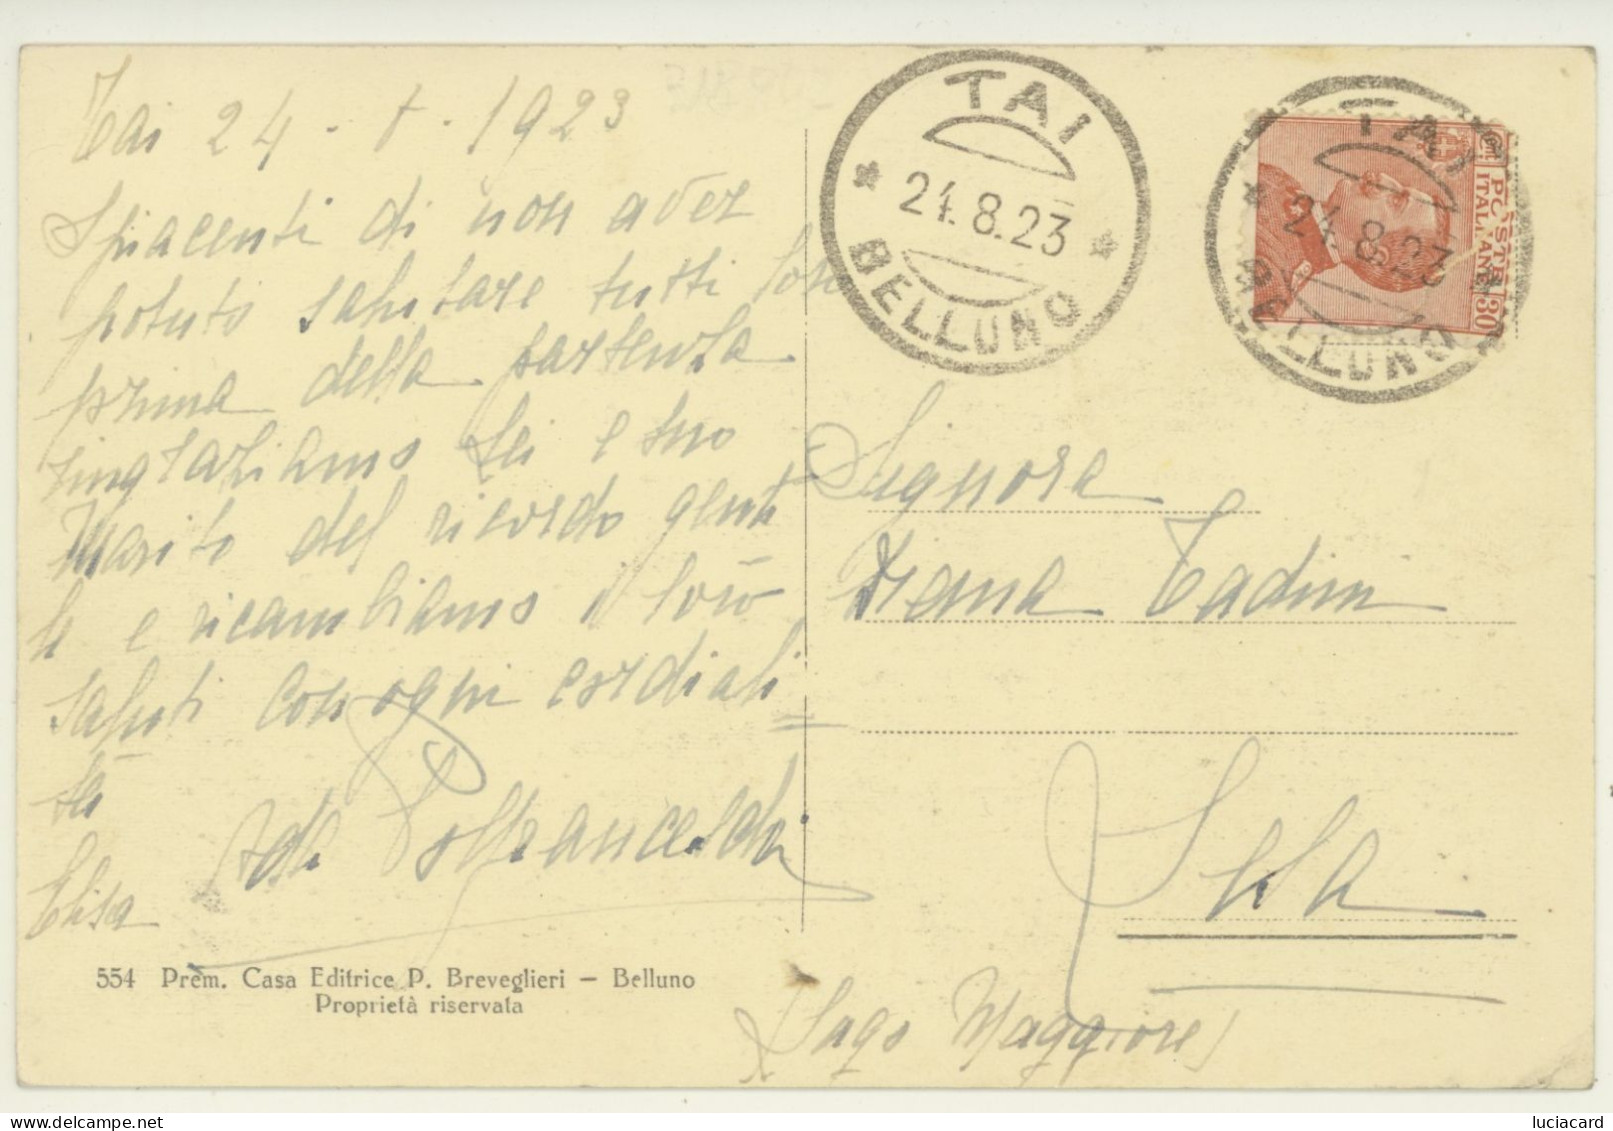 Tai 24 - 8 - 1923
Spiacenti di non aver
potuto salutare tutti loro
prima della partenza
ringraziamo Lei e suo
Marito del ricordo genti
le e ricambiamo i loro
saluti con ogni cordiali
tà
Elisa
554 Prem. Casa Editrice P. Breveglieri - Belluno
Proprietà riservata
TAI
24.8.23
BELLUNO
TAI
24.8.23
BELLUNO
POSTE
ITALIANE
Cent.
30
Signora
Diana Tadini
(Lago Maggiore)
luciacard